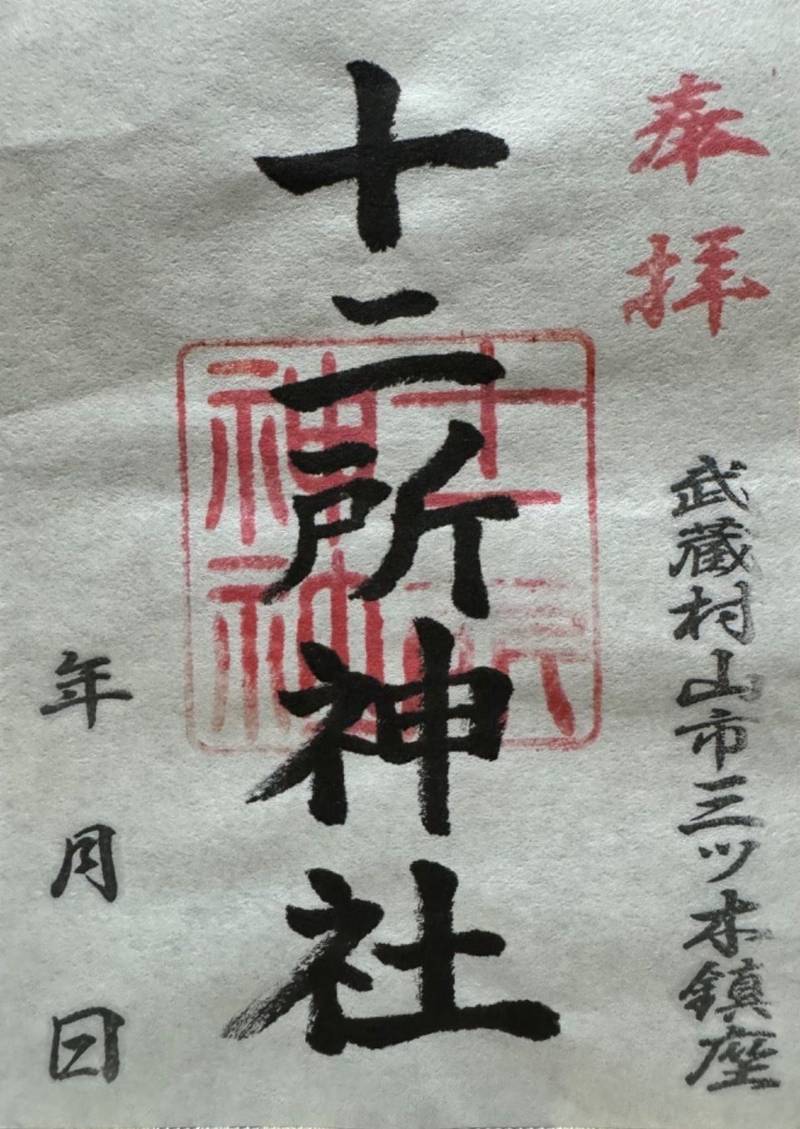 奉拝
武蔵村山市三ツ木鎮座
十二所神社
年 月 日